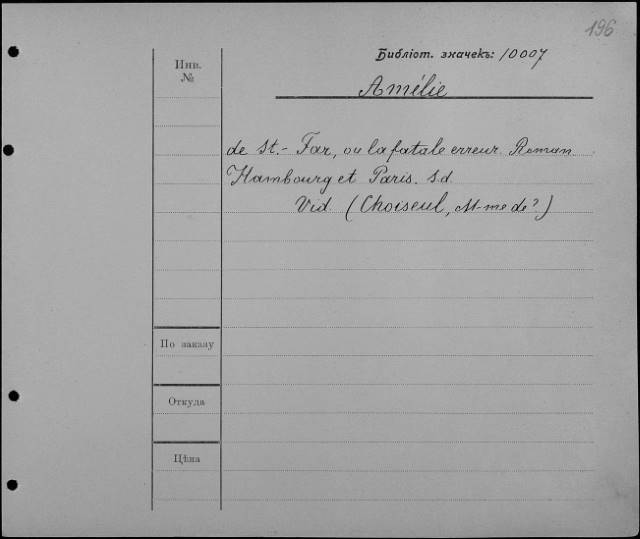 196
Библіот. значекъ: 10007
Инв.
№
Amélie
de St.- Far, ou la fatale erreur. Roman
Hambourg et Paris. s.d.
Vid. (Choiseul, M-me de?)
По заказу
Откуда
Цѣна